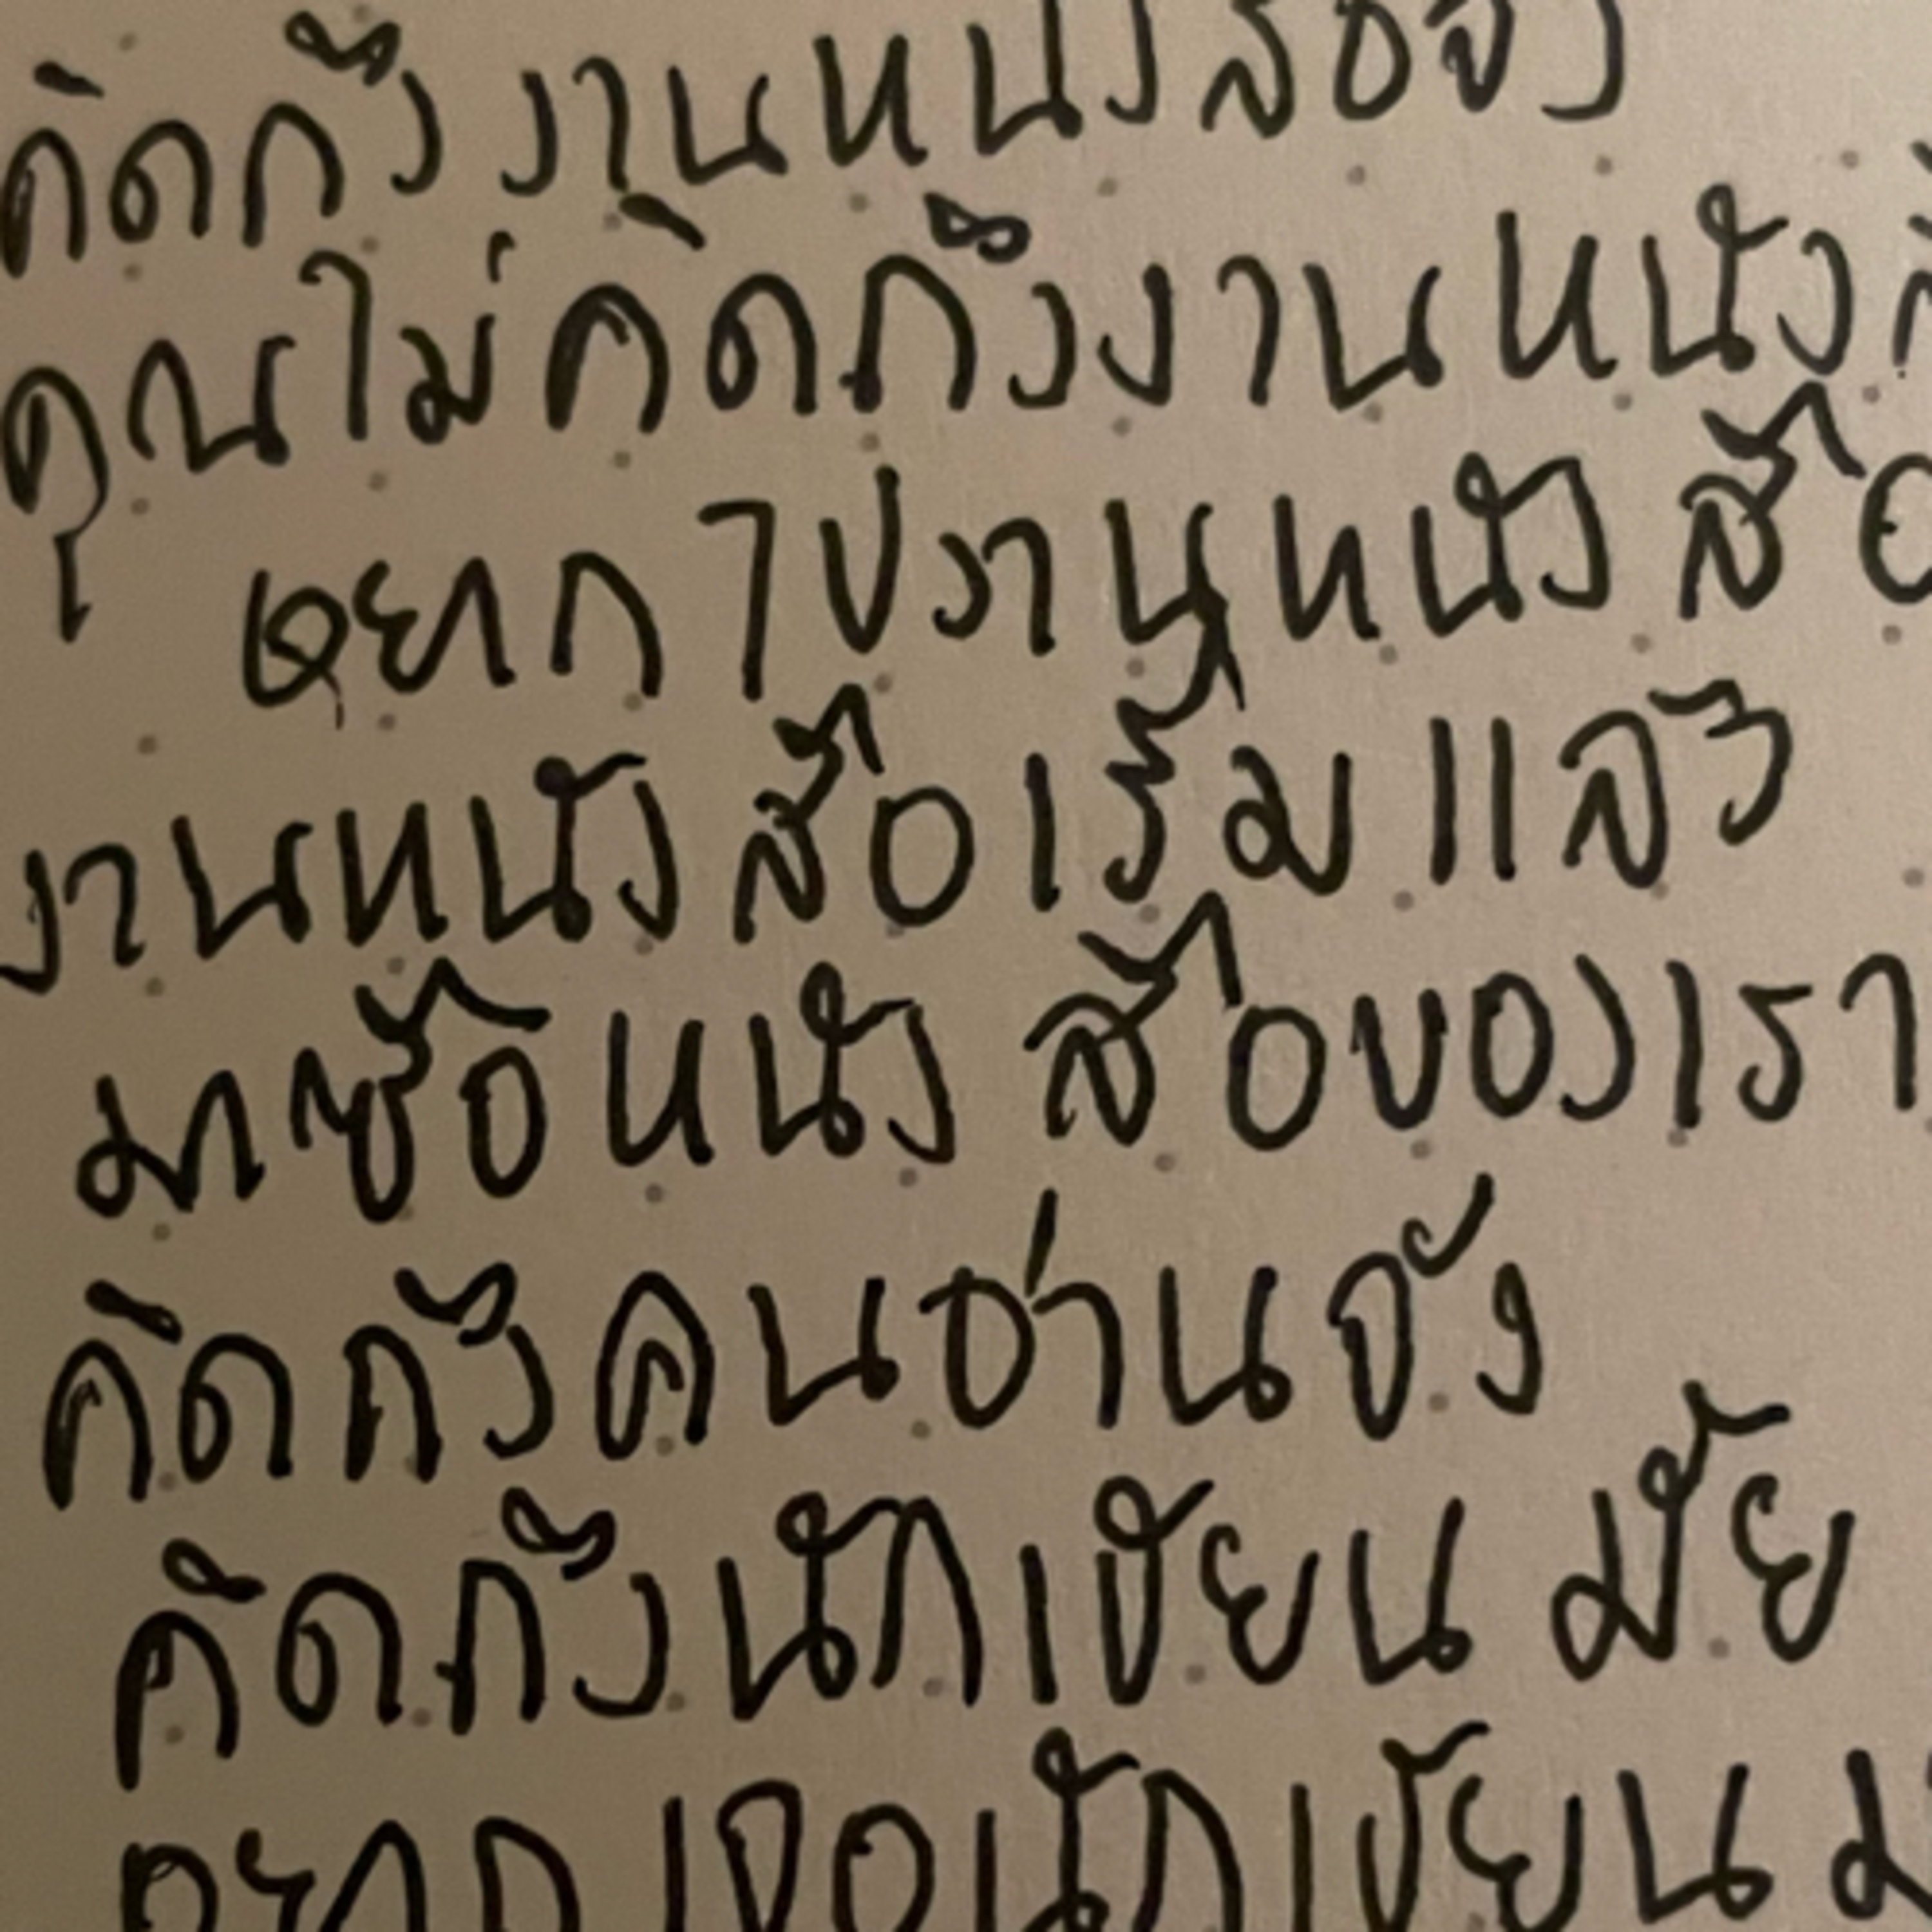 คิดถึงงานหนังสือจัง
คุณไม่คิดถึงงานหนัง
อยากไปงานหนังสือ
งานหนังสือเริ่มแล้ว
มาซื้อหนังสือของเรา
คิดถึงคนอ่านจัง
คิดถึงนักเขียนมั้ย
อยากเจอนักเขียน